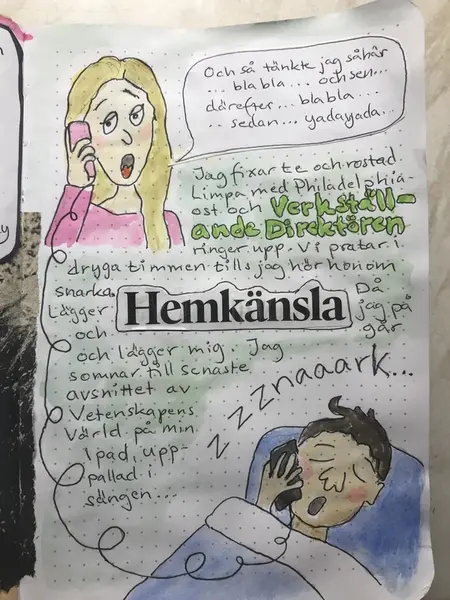 Och så tänkte jag såhär
... bla bla ... och sen...
därefter... bla bla...
.. sedan... yadayada..
Jag fixar te och rostad
Limpa med Philadelphia-
ost och Verkställ-
ande Direktören
ringer upp. Vi pratar i
dryga timmen tills jag hör honom
snarka. Då
Hemkänsla
lägger jag på
och går
och lägger mig. Jag
somnar till senaste
avsnittet av
Vetenskapens
Värld på min
Ipad, upp-
pallad i
sängen...
zzznaaark...